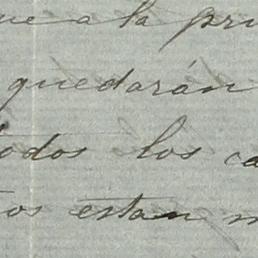 ue a la pri
quedarán
todos los ca
tos estan m